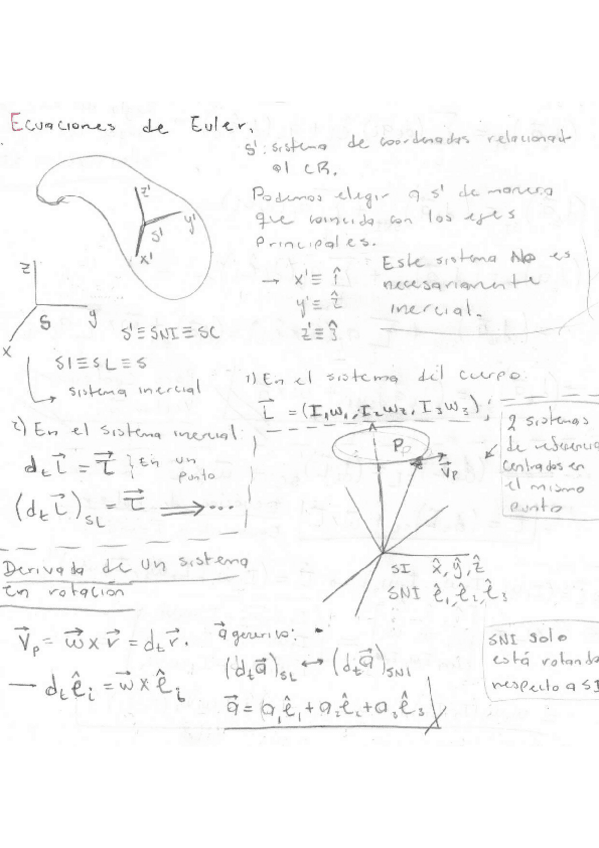 Ecuaciones de Euler.
S': sistema de coordenadas relacionad
al CR.
Podemos elegir a S' de manera
que coincida con los ejes
principales.
→ x' ≡ 1̂
y' ≡ 2̂
z' ≡ 3̂
Este sistema No es
necesariamente
inercial.
z'
y'
S'
x'
z
S
y
x
S' ≡ SNI ≡ SC
SI ≡ SL ≡ S
↳ sistema inercial
1) En el sistema del cuerpo
L⃗ = (I₁ω₁, I₂ω₂, I₃ω₃);
2) En el sistema inercial
dₜL⃗ = τ⃗ } En un
punto
(dₜL⃗)_SL = τ⃗ ⟹ ...
P
V⃗ₚ
2 sistemas
de referencia
centrados en
el mismo
punto
SI x̂, ŷ, ẑ
SNI ê₁, ê₂, ê₃
Derivada de un sistema
en rotación
V⃗ₚ = ω⃗ x r⃗ = dₜr⃗.
→ dₜêᵢ = ω⃗ x êᵢ
a⃗ generico:
(dₜa⃗)_SL ↔ (dₜa⃗)_SNI
a⃗ = a₁ê₁ + a₂ê₂ + a₃ê₃
SNI solo
está rotando
respecto a SI